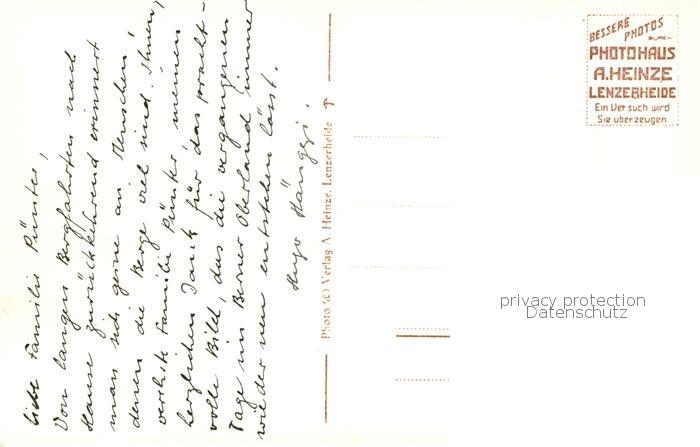 Liebe Familie Pünter,
Von langen Bergfahrten nach
Hause zurückkehrend erinnert
man sich gerne an Menschen,
denen die Berge viel sind. Ihnen,
verehrte Familie Pünter, meinen
herzlichen Dank für das pracht-
volle Bild, das die vergangenen
Tage im Berner Oberland immer
wieder neu entstehen lässt.
Hugo Hänggi.
Photo (C) Verlag A. Heinze, Lenzerheide
BESSERE
PHOTOS
PHOTOHAUS
A.HEINZE
LENZERHEIDE
Ein Versuch wird
Sie überzeugen
privacy protection
Datenschutz